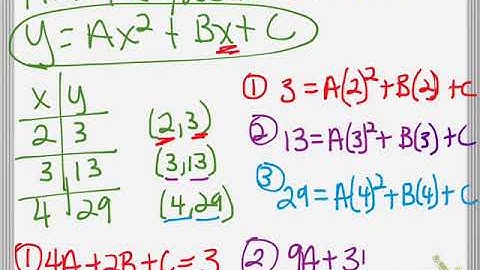 y = Ax² + Bx + C
x | y
2 | 3
3 | 13
4 | 29
(2,3)
(3,13)
(4,29)
① 3 = A(2)² + B(2) + C
② 13 = A(3)² + B(3) + C
③ 29 = A(4)² + B(4) + C
① 4A + 2B + C = 3
② 9A + 3